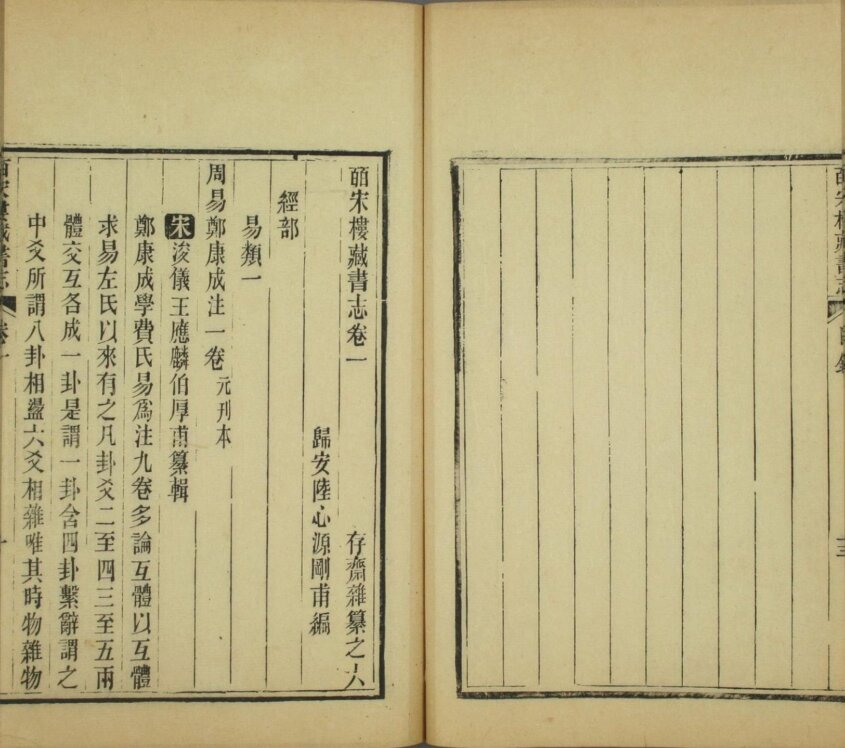 皕宋樓藏書志
目錄
三
皕宋樓藏書志卷一 存齋雜纂之六
歸安陸心源剛甫編
經部
易類一
周易鄭康成注一卷 元刊本
宋浚儀王應麟伯厚甫纂輯
鄭康成學費氏易爲注九卷多論互體以互體
求易左氏以來有之凡卦爻二至四三至五兩
體交互各成一卦是謂一卦含四卦繫辭謂之
中爻所謂八卦相盪六爻相雜唯其時物雜物
皕宋樓藏書志
卷一
一